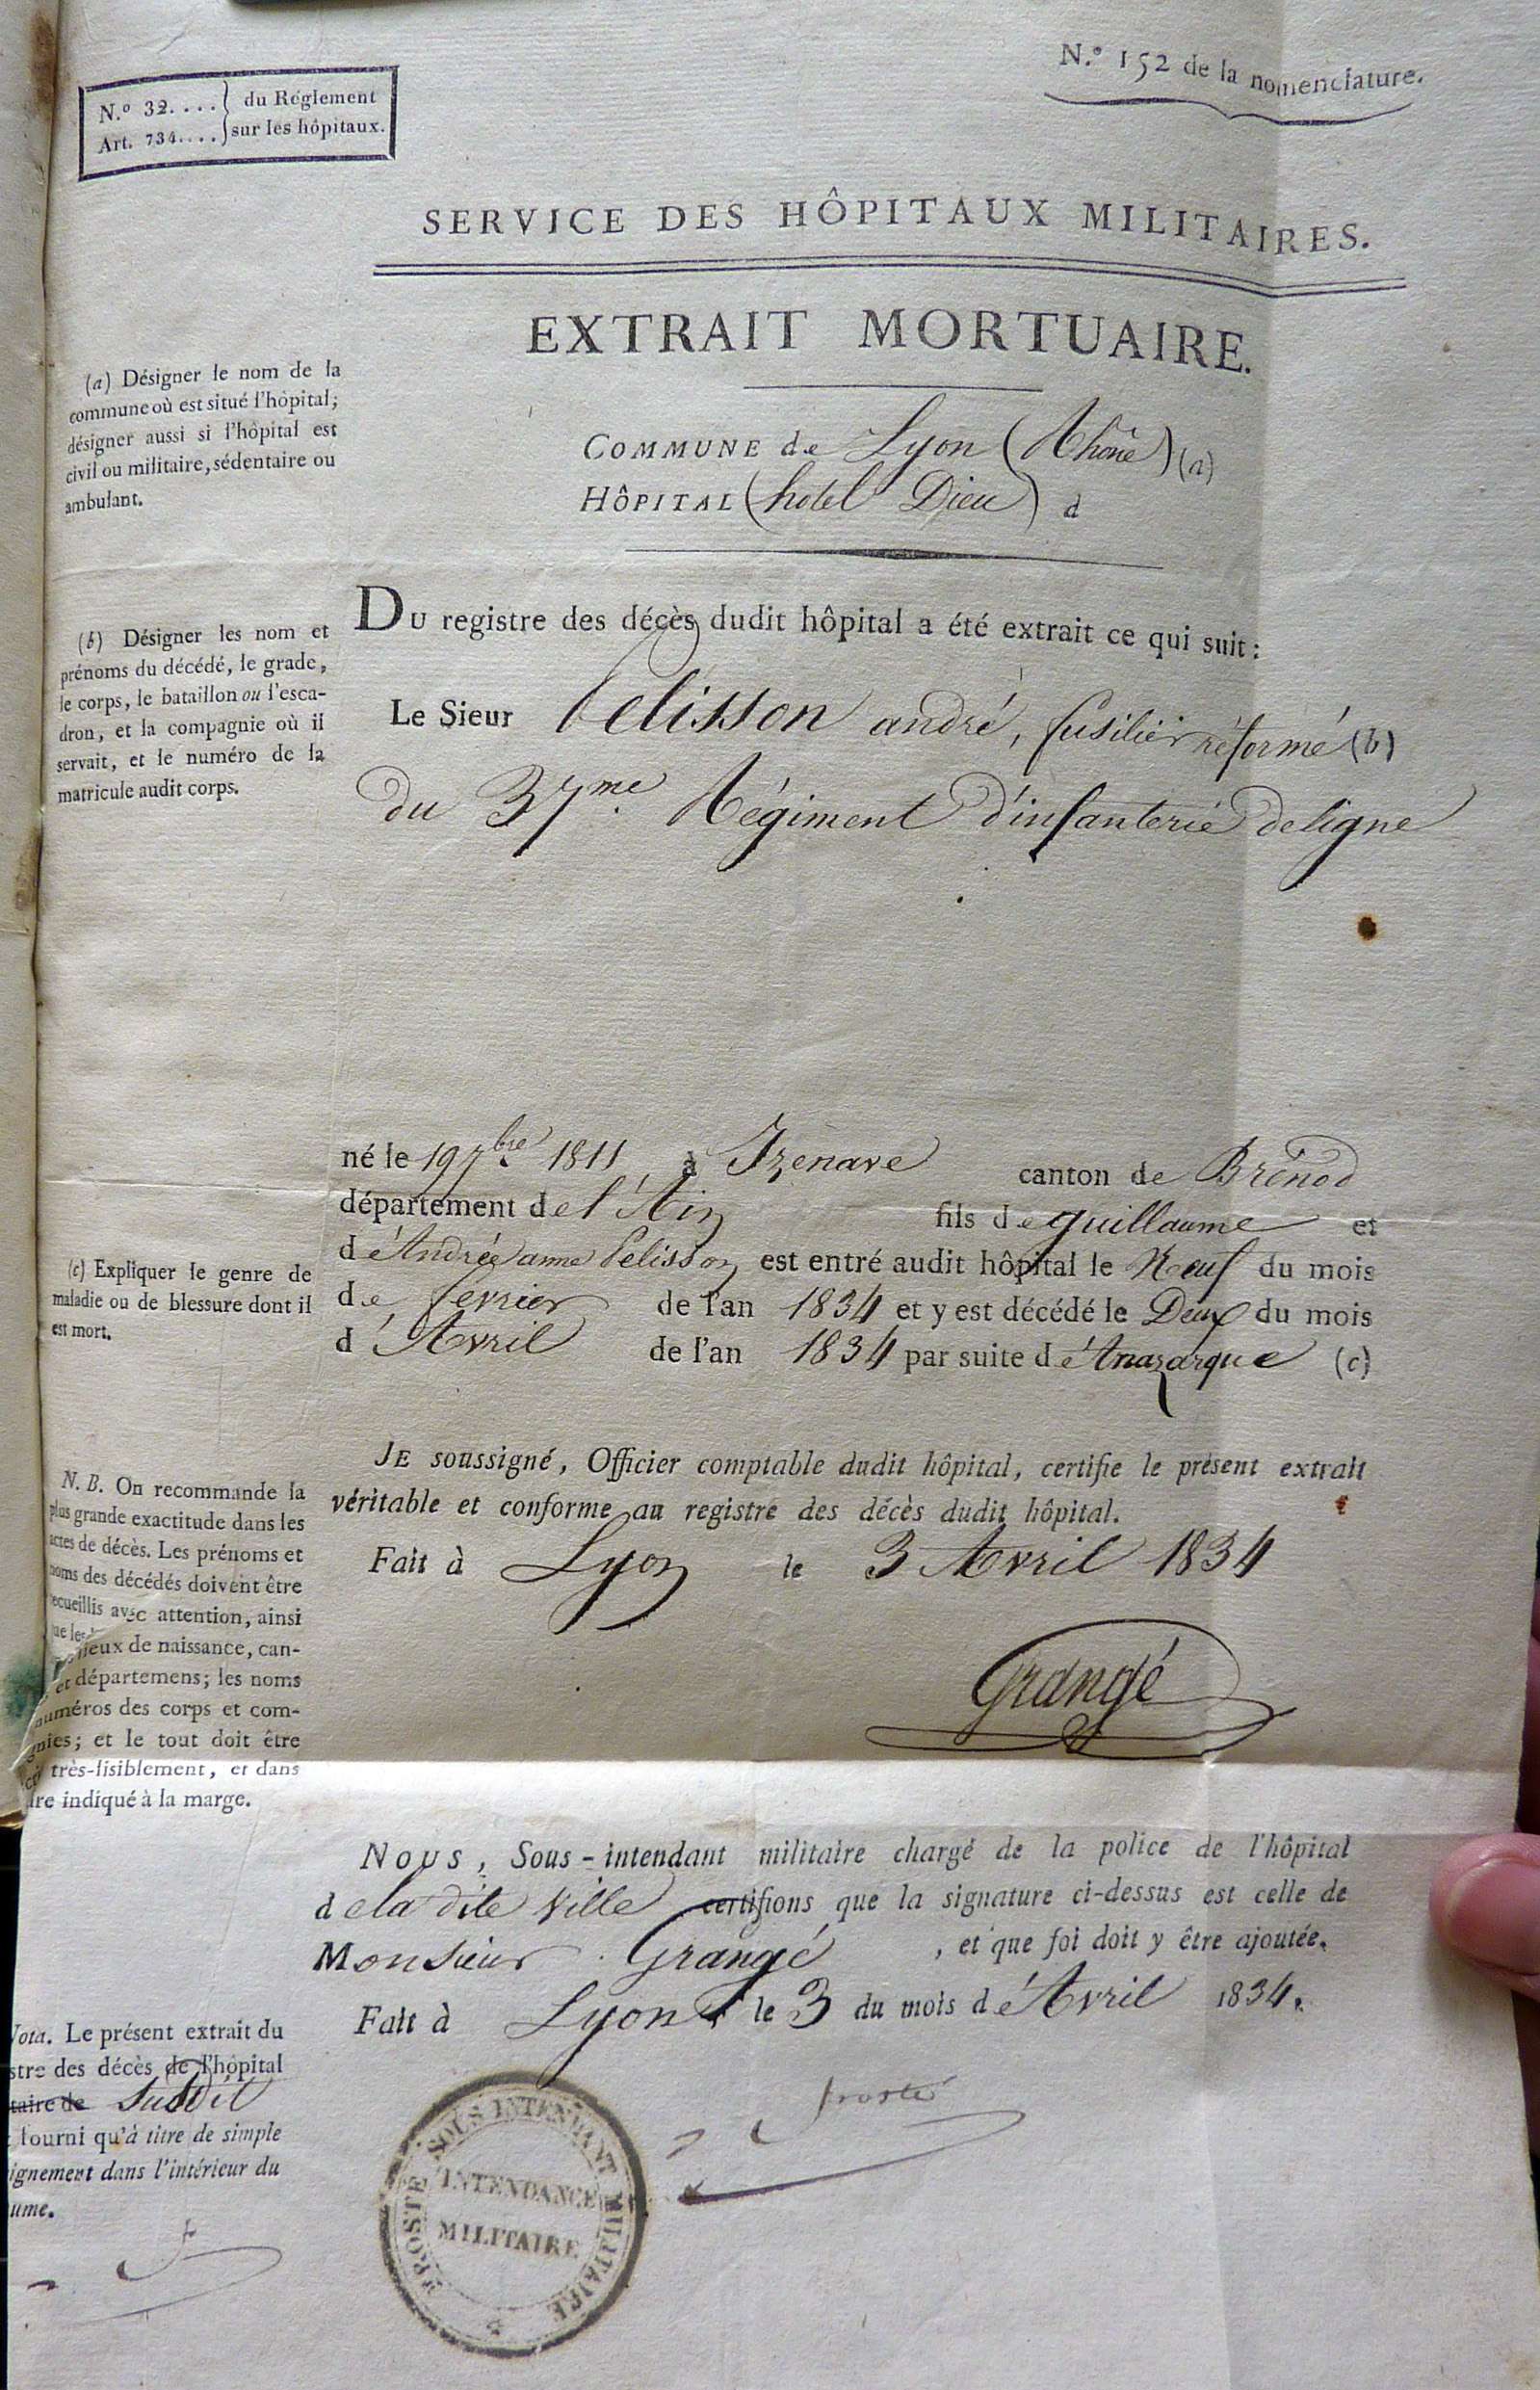 N.º 32.... } du Réglement
Art. 734.... } sur les hôpitaux.
N.º 152 de la nomenclature.
SERVICE DES HÔPITAUX MILITAIRES.
EXTRAIT MORTUAIRE.
(a) Désigner le nom de la
commune où est situé l'hôpital;
désigner aussi si l'hôpital est
civil ou militaire, sédentaire ou
ambulant.
COMMUNE de Lyon (Rhône) (a)
HÔPITAL (hotel Dieu) d
DU registre des décès dudit hôpital a été extrait ce qui suit:
(b) Désigner les nom et
prénoms du décédé, le grade,
le corps, le bataillon ou l'esca-
dron, et la compagnie où il
servait, et le numéro de la
matricule audit corps.
Le Sieur Pelisson andré, fusilier réformé (b)
du 37me. Régiment d'infanterie de ligne
né le 19 7bre. 1811 à Izenave canton de Brénod
département de l'Ain fils de guillaume et
d'Andrée anne Pelisson est entré audit hôpital le Neuf du mois
de fevrier de l'an 1834 et y est décédé le Deux du mois
d'Avril de l'an 1834 par suite d'Anazarque (c)
(c) Expliquer le genre de
maladie ou de blessure dont il
est mort.
JE soussigné, Officier comptable dudit hôpital, certifie le présent extrait
véritable et conforme au registre des décès dudit hôpital.
Fait à Lyon le 3 Avril 1834
Grangé
N. B. On recommande la
plus grande exactitude dans les
actes de décès. Les prénoms et
noms des décédés doivent être
recueillis avec attention, ainsi
que les
lieux de naissance, can-
et départemens; les noms
numéros des corps et com-
gnies; et le tout doit être
très-lisiblement, et dans
dre indiqué à la marge.
NOUS, Sous-intendant militaire chargé de la police de l'hôpital
de la dite Ville certifions que la signature ci-dessus est celle de
Monsieur Grangé, et que foi doit y être ajoutée.
Fait à Lyon le 3 du mois d'Avril 1834.
Nota. Le présent extrait du
stre des décès de l'hôpital
taire de Susdit
fourni qu'à titre de simple
ignement dans l'intérieur du
ume.
Proste
PROSTE SOUS INTENDANT MILITAIRE
INTENDANCE
MILITAIRE